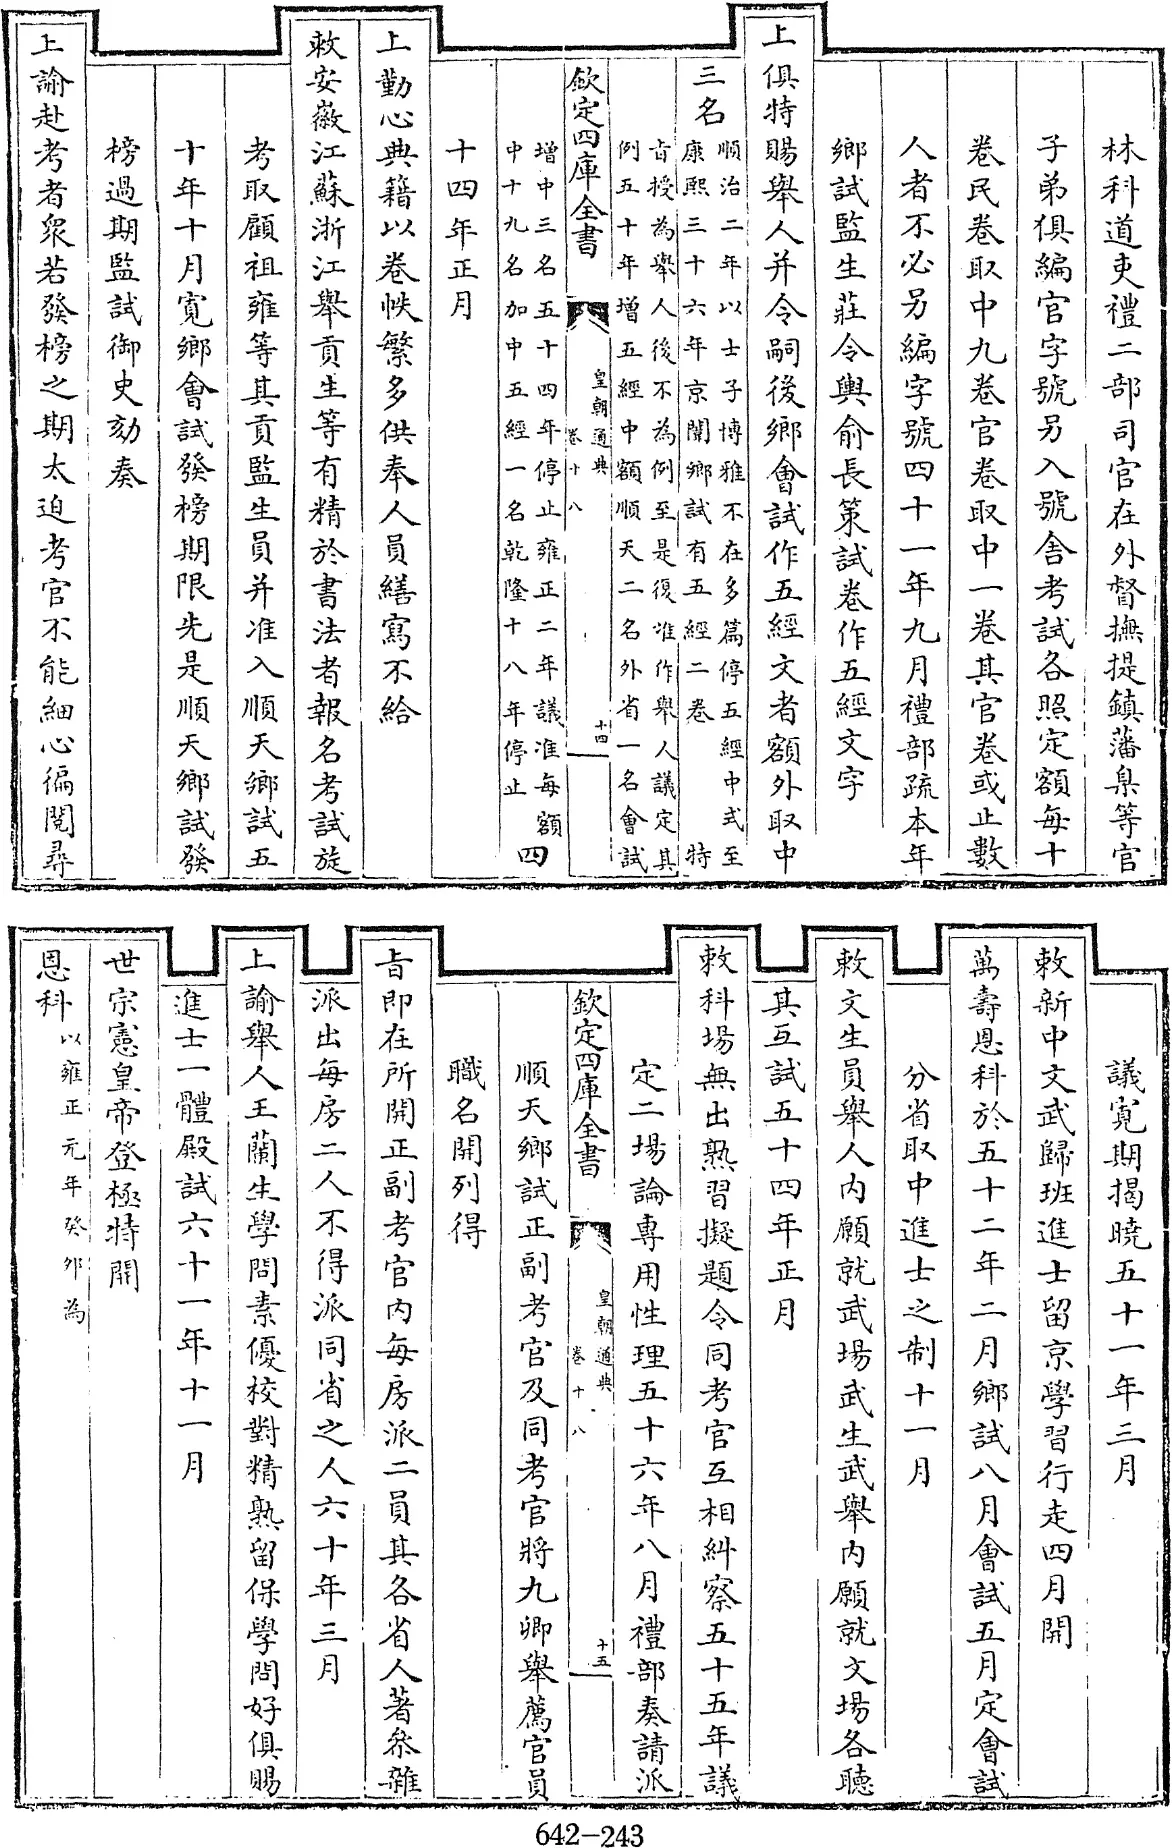 林科道吏禮二部司官在外督撫提鎮藩臬等官
子弟俱編官字號另入號舍考試各照定額每十
卷民卷取中九卷官卷取中一卷其官卷或止數
人者不必另編字號四十一年九月禮部疏本年
鄉試監生莊令輿俞長策試卷作五經文字
上俱特賜舉人并令嗣後鄉會試作五經文者額外取中
三名順治二年以士子博雅不在多篇停五經中式至
康熙三十六年京闈鄉試有五經二卷特
旨授為舉人後不為例至是復准作舉人議定其
例五十年增五經中額順天二名外省一名會試
欽定四庫全書
皇朝通典
卷十八
十四
增中三名五十四年停止雍正二年議准每額
中十九名加中五經一名乾隆十八年停止
四
十四年正月
上勤心典籍以卷帙繁多供奉人員繕寫不給
敕安徽江蘇浙江舉貢生等有精於書法者報名考試旋
考取顧祖雍等其貢監生員并准入順天鄉試五
十年十月寬鄉會試發榜期限先是順天鄉試發
榜過期監試御史劾奏
上諭赴考者衆若發榜之期太迫考官不能細心徧閱尋
議寬期揭曉五十一年三月
敕新中文武歸班進士留京學習行走四月開
萬壽恩科於五十二年二月鄉試八月會試五月定會試
分省取中進士之制十一月
敕文生員舉人內願就武場武生武舉內願就文場各聽
其互試五十四年正月
敕科場無出熟習擬題令同考官互相糾察五十五年議
定二場論專用性理五十六年八月禮部奏請派
欽定四庫全書
皇朝通典
卷十八
十五
順天鄉試正副考官及同考官將九卿舉薦官員
職名開列得
旨即在所開正副考官內每房派二員其各省人著叅雜
派出每房二人不得派同省之人六十年三月
上諭舉人王蘭生學問素優校對精熟留保學問好俱賜
進士一體殿試六十一年十一月
世宗憲皇帝登極特開
恩科以雍正元年癸卯為
642-243